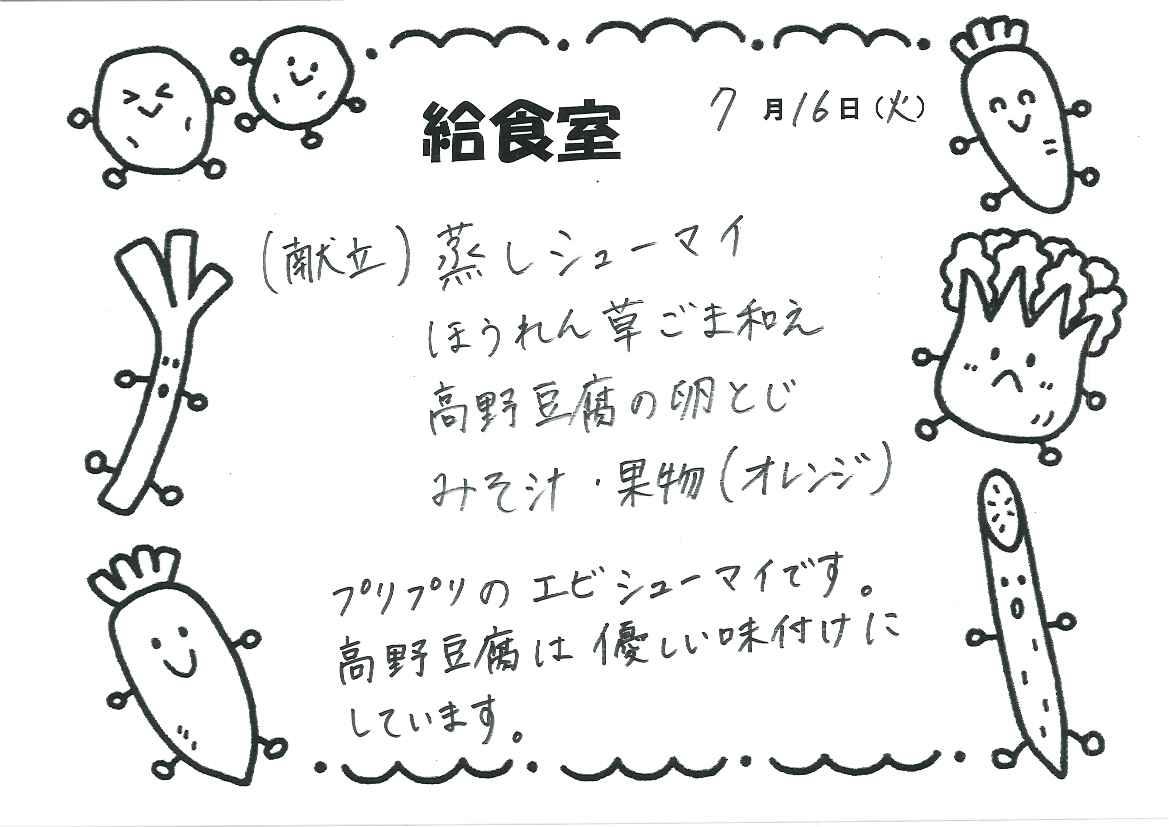 給食室
7月16日(火)
(献立) 蒸しシューマイ
ほうれん草ごま和え
高野豆腐の卵とじ
みそ汁・果物(オレンジ)
プリプリのエビシューマイです。
高野豆腐は優しい味付けに
しています。